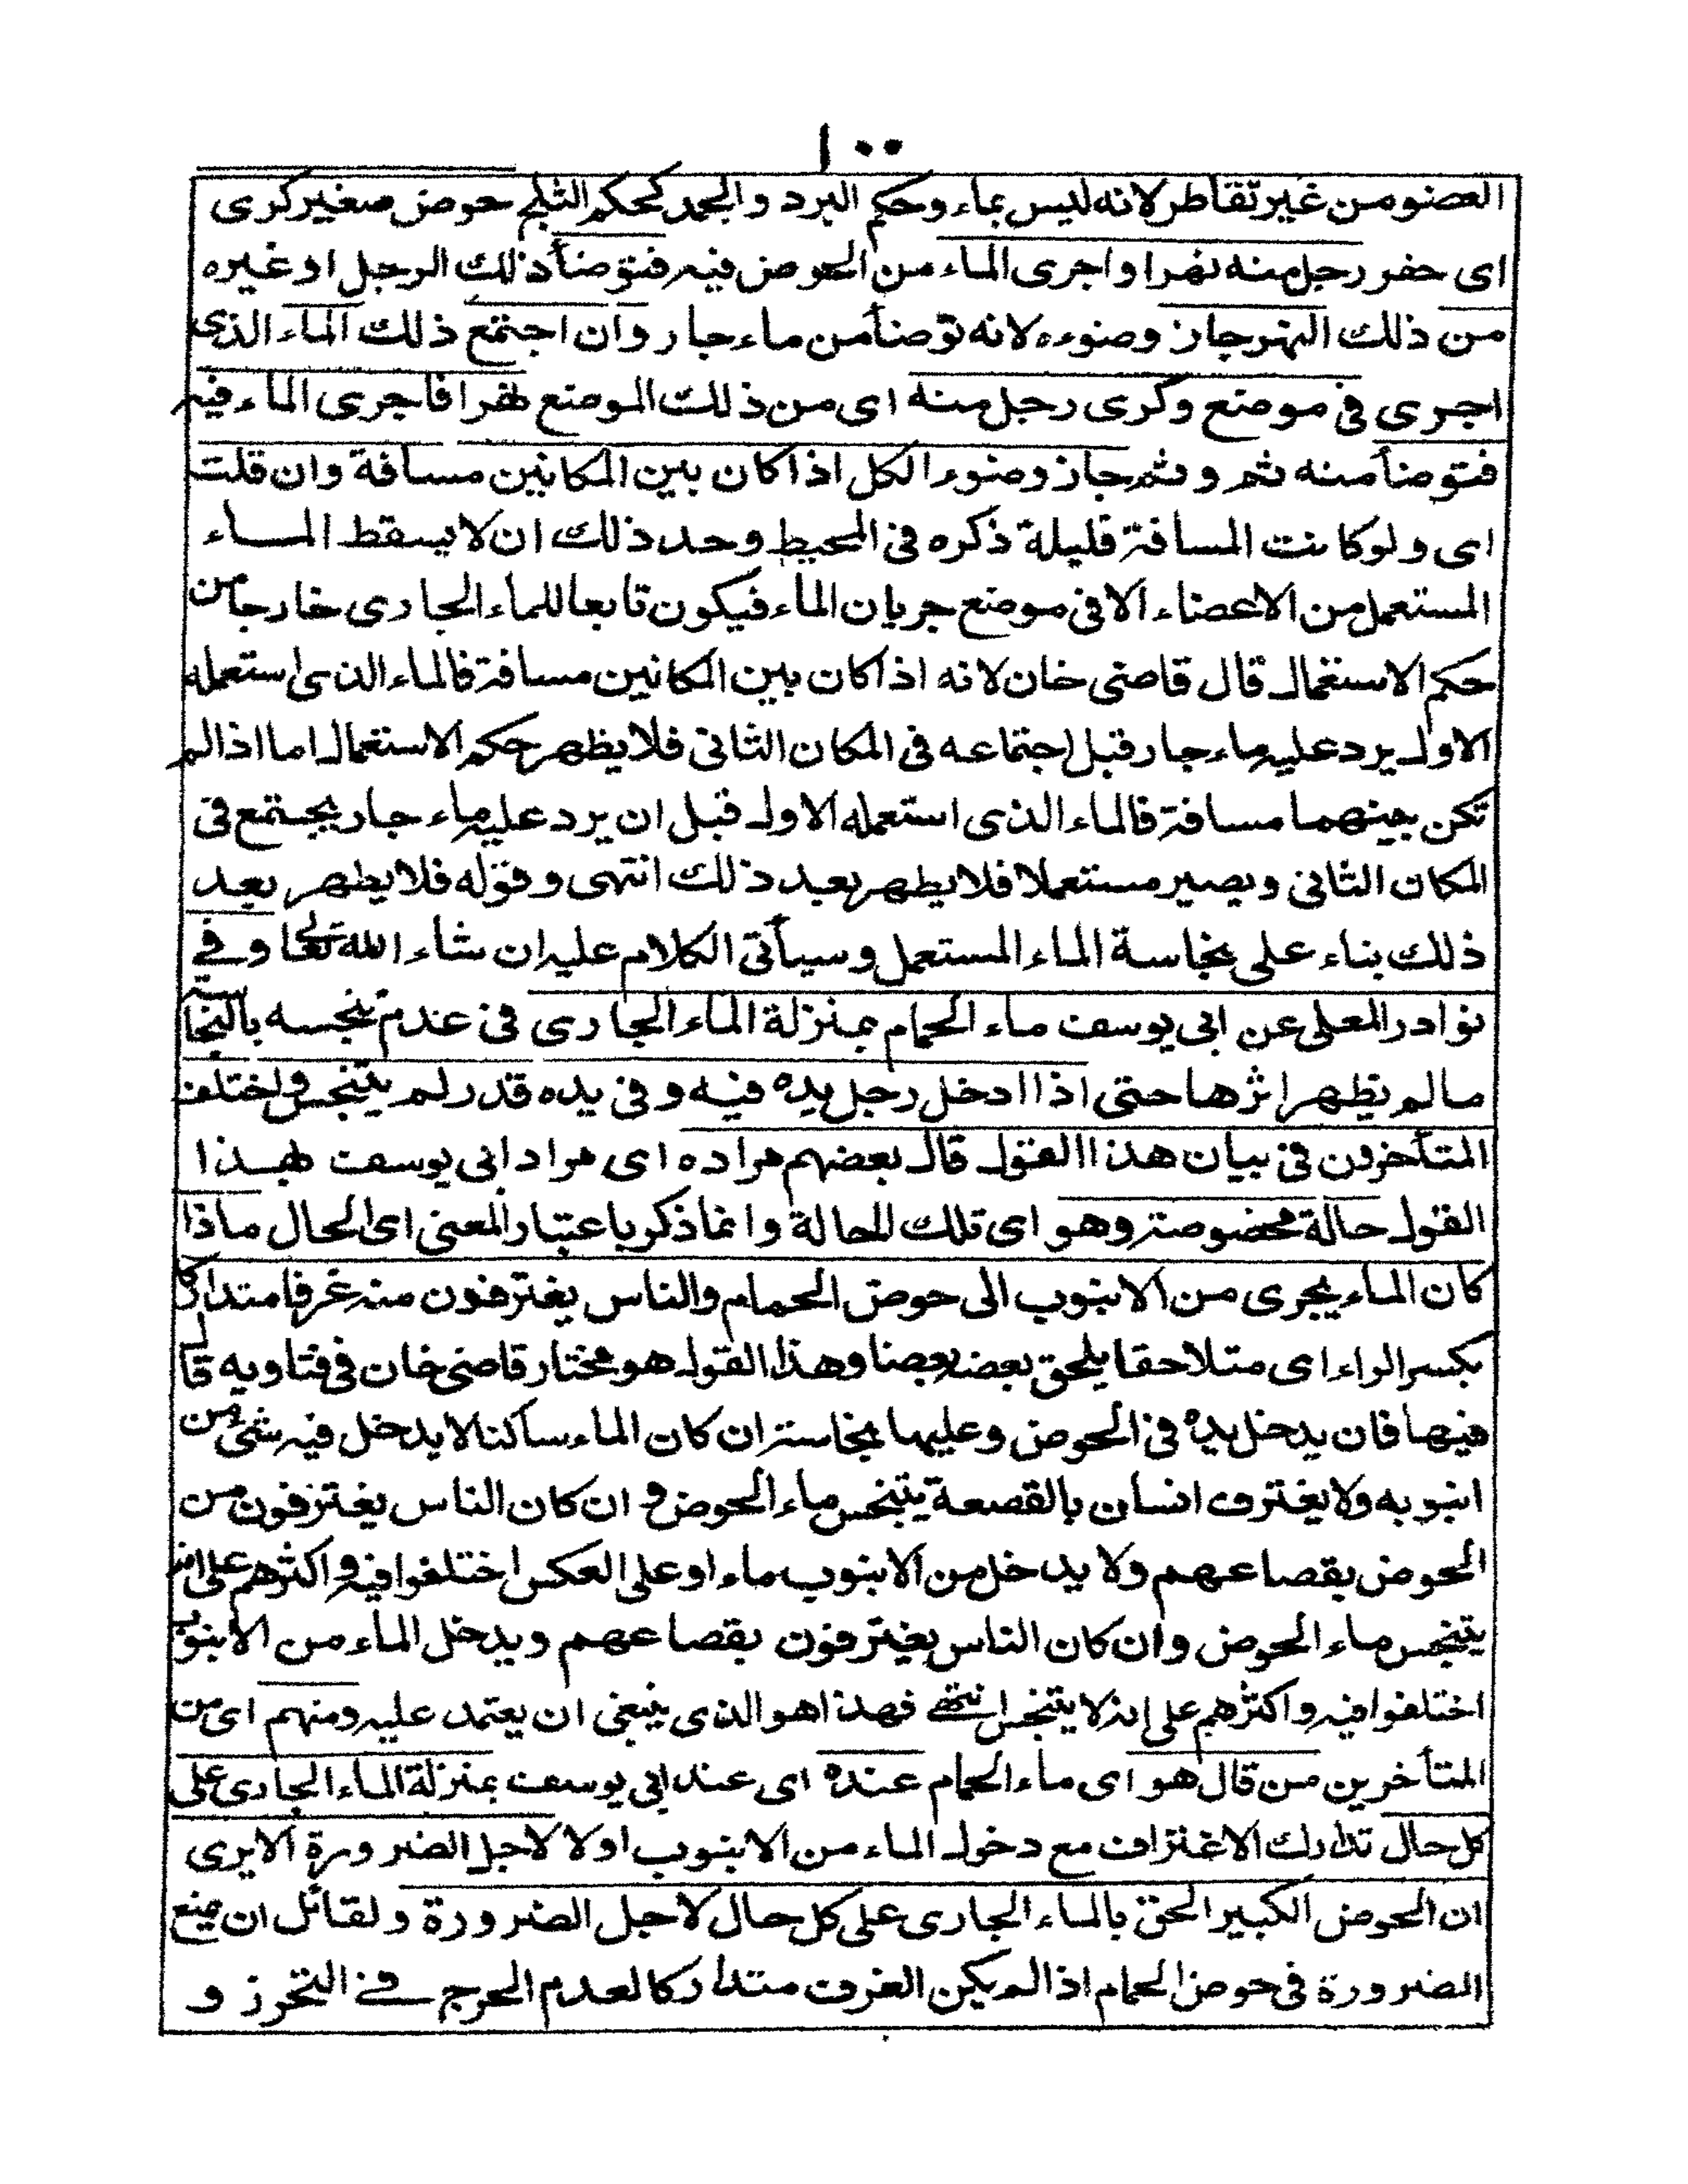 ١٠٠
العضو من غير تقاطر لانه ليس بماء وحكم البرد والجمد كحكم الثلج حوض صغير كرى
اى حفر رجل منه نهرا واجرى الماء من الحوض فيه فتوضأ ذلك الرجل او غيره
من ذلك النهر جاز وضوءه لانه توضأ من ماء جار وان اجتمع ذلك الماء الذى
اجرى فى موضع وكرى رجل منه اى من ذلك الموضع نهرا فاجرى الماء فيه
فتوضأ منه ثم وثم جاز وضوء الكل اذا كان بين المكانين مسافة وان قلت
اى ولو كانت المسافة قليلة ذكره فى المحيط وحد ذلك ان لا يسقط المساء
المستعمل من الاعضاء الا فى موضع جريان الماء فيكون تابعا للماء الجارى خارجا من
حكم الاستعمال قال قاضى خان لانه اذا كان بين المكانين مسافة فالماء الذى استعمله
الاول يرد عليه ماء جار قبل اجتماعه فى المكان الثانى فلا يظهر حكم الاستعمال اما اذا لم
تكن بينهما مسافة فالماء الذى استعمله الاول قبل ان يرد عليه ماء جار يجتمع فى
المكان الثانى ويصير مستعملا فلا يطهر بعد ذلك انتهى وقوله فلا يطهر بعد
ذلك بناء على نجاسة الماء المستعمل وسيأتى الكلام عليه ان شاء الله تعالى وفى
نوادر المعلى عن ابى يوسف ماء الحمام بمنزلة الماء الجارى فى عدم تنجسه بالنجاسة
ما لم يظهر اثرها حتى اذا ادخل رجل يده فيه وفى يده قذر لم يتنجس واختلف
المتأخرون فى بيان هذا القول قال بعضهم مراده اى مراد ابى يوسف بهذا
القول حالة مخصوصة وهو اى تلك الحالة وانما ذكر باعتبار المعنى اى الحال ماذا
كان الماء يجرى من الانبوب الى حوض الحمام والناس يغترفون منه غرفا متداركا
بكسر الراء اى متلاحقا يلحق بعضه بعضا وهذا القول هو مختار قاضى خان فى فتاويه قال
فيها فان يدخل يده فى الحوض وعليها نجاسة ان كان الماء ساكنا لا يدخل فيه شئ من
انبوبه ولا يغترف انسان بالقصعة يتنجس ماء الحوض و ان كان الناس يغترفون من
الحوض بقصاعهم ولا يدخل من الانبوب ماء او على العكس اختلفوا فيه واكثرهم على انه
يتنجس ماء الحوض وان كان الناس يغترفون بقصاعهم ويدخل الماء من الانبوب
اختلفوا فيه واكثرهم على انه لا يتنجس انتهى فهذا هو الذى ينبغى ان يعتمد عليه ومنهم اى من
المتأخرين من قال هو اى ماء الحمام عنده اى عند ابى يوسف بمنزلة الماء الجارى على
كل حال تدارك الاغتراف مع دخول الماء من الانبوب اولا لاجل الضرورة الا يرى
ان الحوض الكبير الحق بالماء الجارى على كل حال لاجل الضرورة ولقائل ان يمنع
الضرورة فى حوض الحمام اذا لم يكن الغرف متداركا لعدم الحرج فى التحرز و